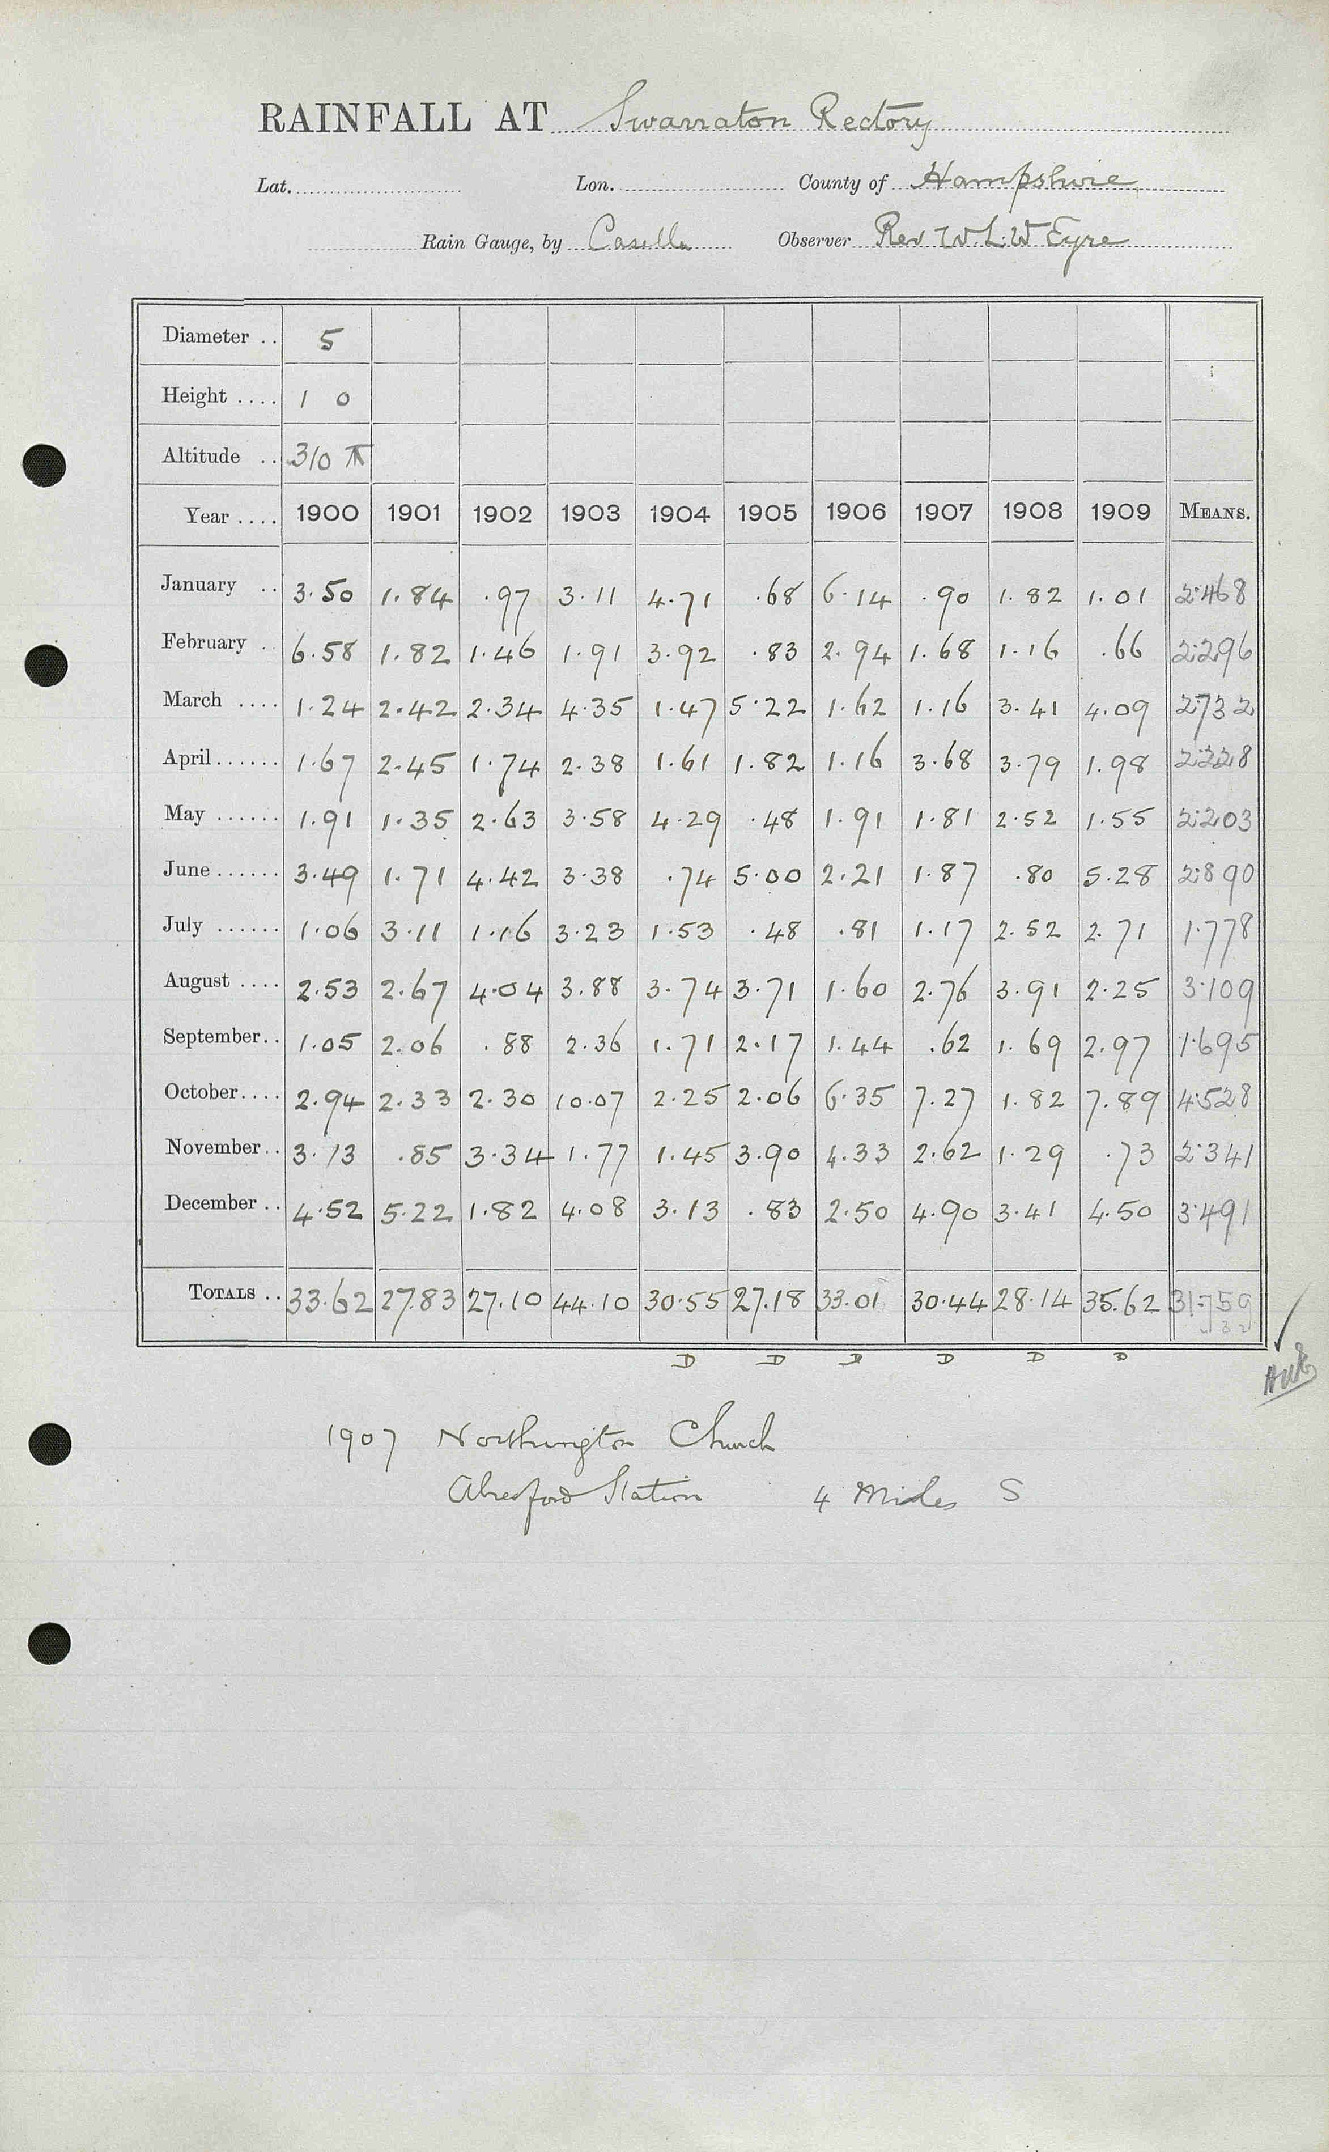 RAINFALL AT Swarraton Rectory
Lat. Lon. County of Hampshire
Rain Gauge, by Casella Observer Rev W. L. W Eyre
Diameter .. 5
Height .... 1 0
Altitude .. 310 ft
Year .... 1900 1901 1902 1903 1904 1905 1906 1907 1908 1909 MEANS.
January .. 3.50 1.84 .97 3.11 4.71 .68 6.14 .90 1.82 1.01 2.468
February . 6.58 1.82 1.46 1.91 3.92 .83 2.94 1.68 1.16 .66 2.296
March .... 1.24 2.42 2.34 4.35 1.47 5.22 1.62 1.16 3.41 4.09 2.732
April...... 1.67 2.45 1.74 2.38 1.61 1.82 1.16 3.68 3.79 1.98 2.228
May ...... 1.91 1.35 2.63 3.58 4.29 .48 1.91 1.81 2.52 1.55 2.203
June ...... 3.49 1.71 4.42 3.38 .74 5.00 2.21 1.87 .80 5.28 2.890
July ...... 1.06 3.11 1.16 3.23 1.53 .48 .81 1.17 2.52 2.71 1.778
August .... 2.53 2.67 4.04 3.88 3.74 3.71 1.60 2.76 3.91 2.25 3.109
September.. 1.05 2.06 .88 2.36 1.71 2.17 1.44 .62 1.69 2.97 1.695
October.... 2.94 2.33 2.30 10.07 2.25 2.06 6.35 7.27 1.82 7.89 4.528
November.. 3.13 .85 3.34 1.77 1.45 3.90 4.33 2.62 1.29 .73 2.341
December .. 4.52 5.22 1.82 4.08 3.13 .83 2.50 4.90 3.41 4.50 3.491
TOTALS .. 33.62 27.83 27.10 44.10 30.55 27.18 33.01 30.44 28.14 35.62 31.759
D D D D D D
1907 Northington Church
Alresford Station 4 Miles S